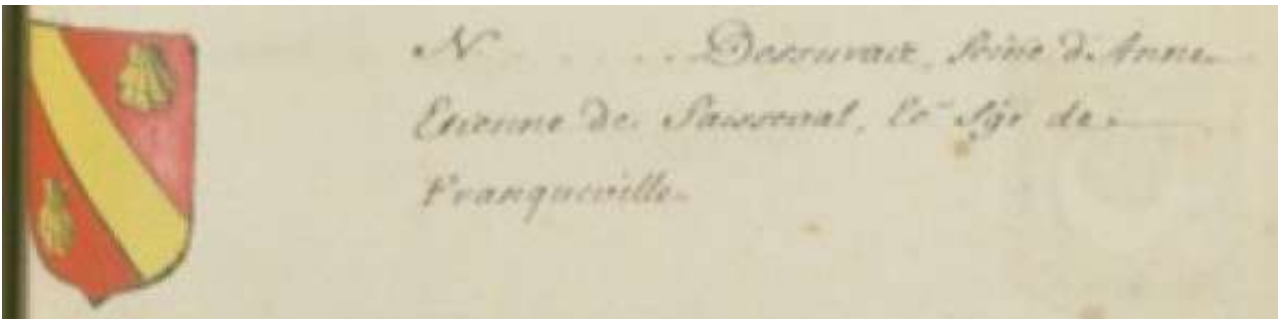 N . . . . . . Desruvaux, feme d'Anne
Etienne de Saissenal, Ec.r Sgr de
Franqueville